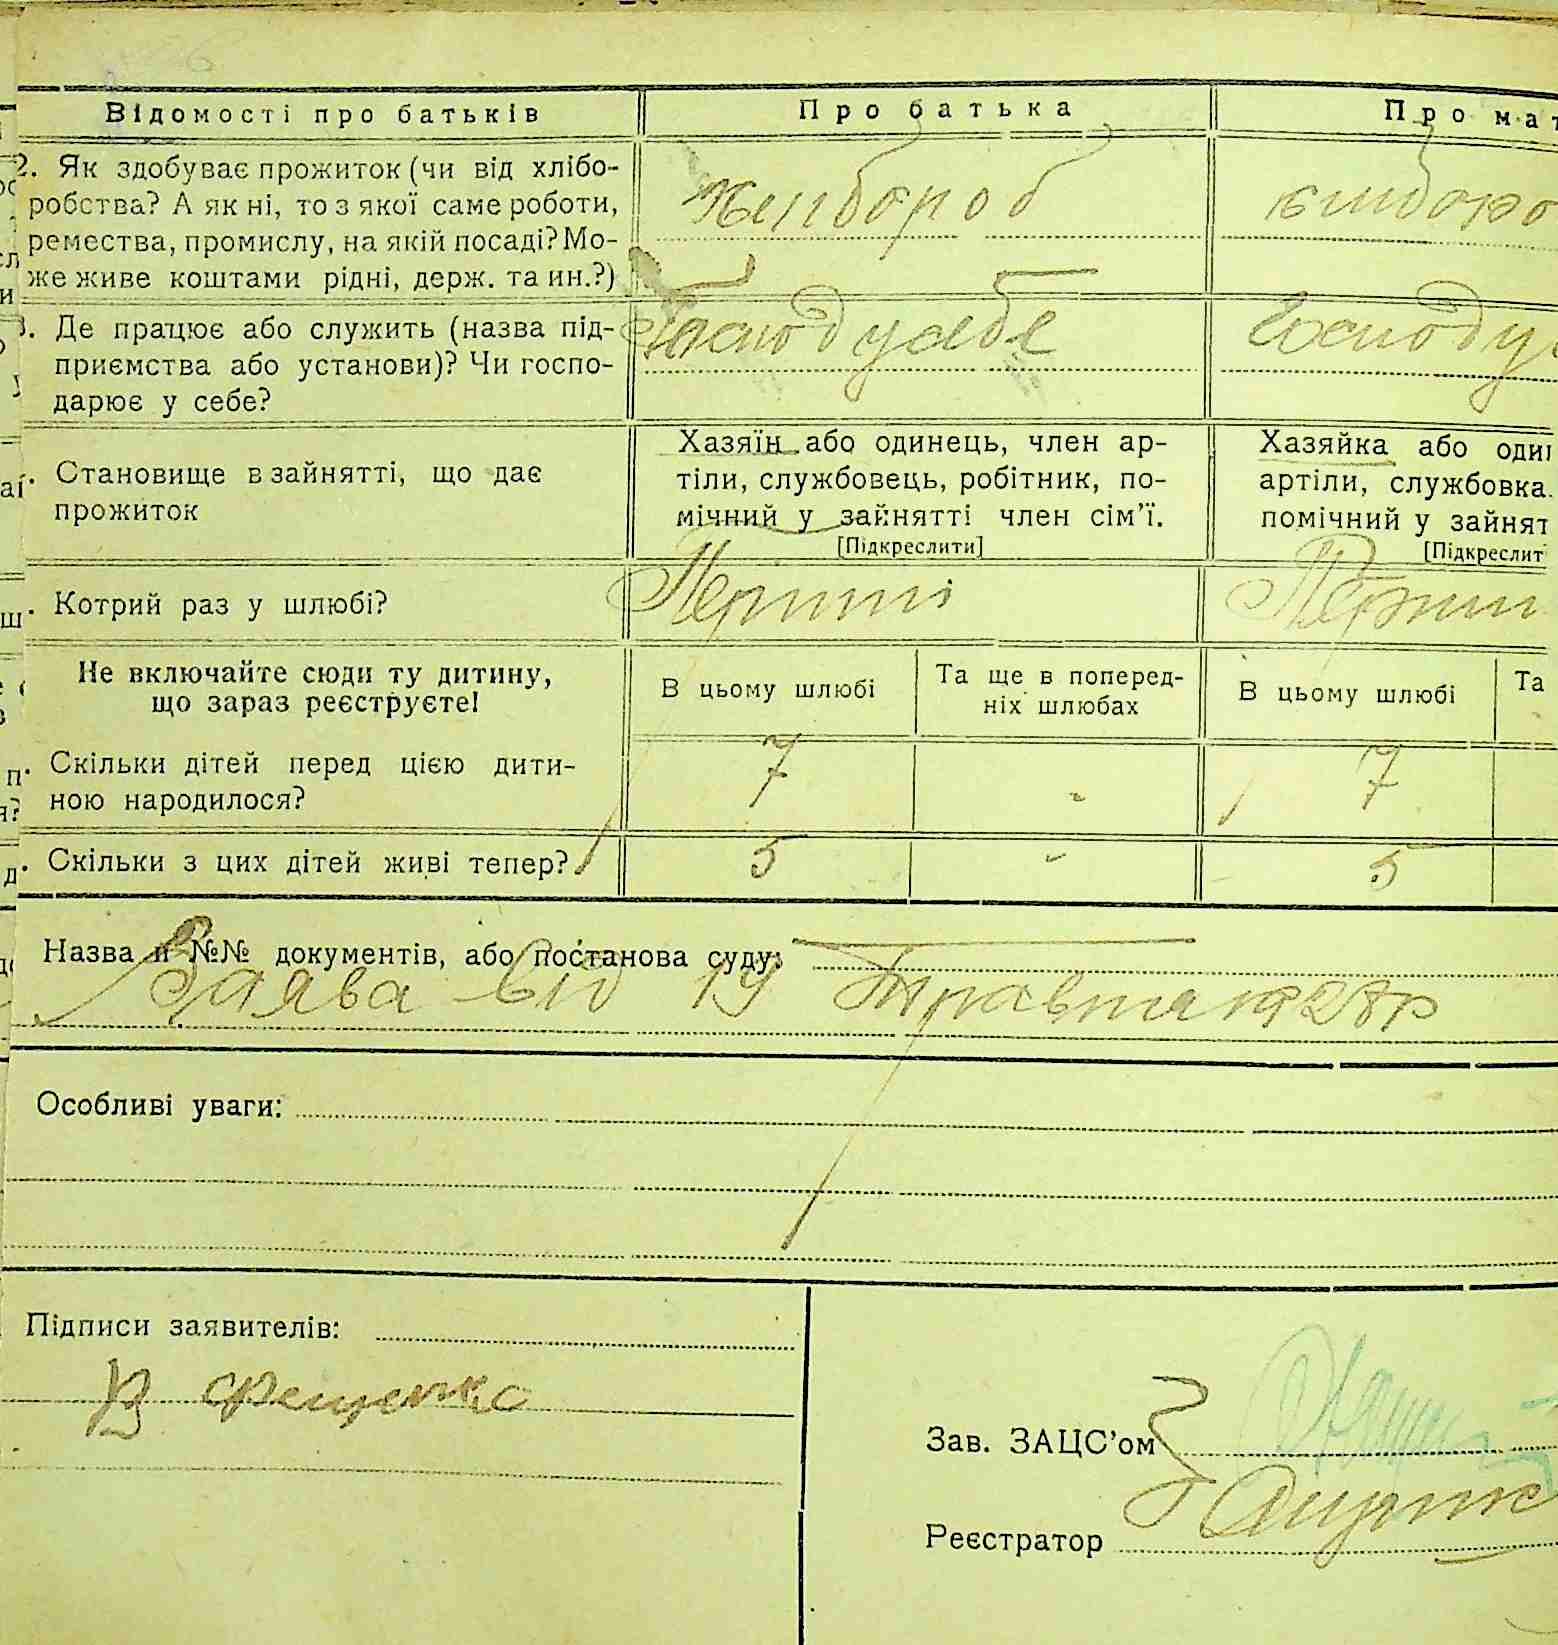 Відомості про батьків Про батька Про мат
2. Як здобуває прожиток (чи від хлібо-
робства? А як ні, то з якої саме роботи,
ремества, промислу, на якій посаді? Мо-
же живе коштами рідні, держ. та ин.?)
3. Де працює або служить (назва під-
приємства або установи)? Чи госпо-
дарює у себе?
Господ у себе Господ у
Становище в зайнятті, що дає
прожиток
Хазяїн або одинець, член ар-
тіли, службовець, робітник, по-
мічний у зайнятті член сім'ї.
[Підкреслити]
Хазяйка або один
артіли, службовка.
помічний у зайнят
[Підкреслит
Котрий раз у шлюбі? Перший Перший
Не включайте сюди ту дитину,
що зараз реєструєте!
В цьому шлюбі
Та ще в поперед-
ніх шлюбах
В цьому шлюбі
Та
Скільки дітей перед цією дити-
ною народилося?
7 - 7
Скільки з цих дітей живі тепер? 5 - 5
Назва й №№ документів, або постанова суду:
Заява від 19 Травня 1928 р
Особливі уваги:
Підписи заявителів:
Зав. ЗАЦС'ом
Реєстратор